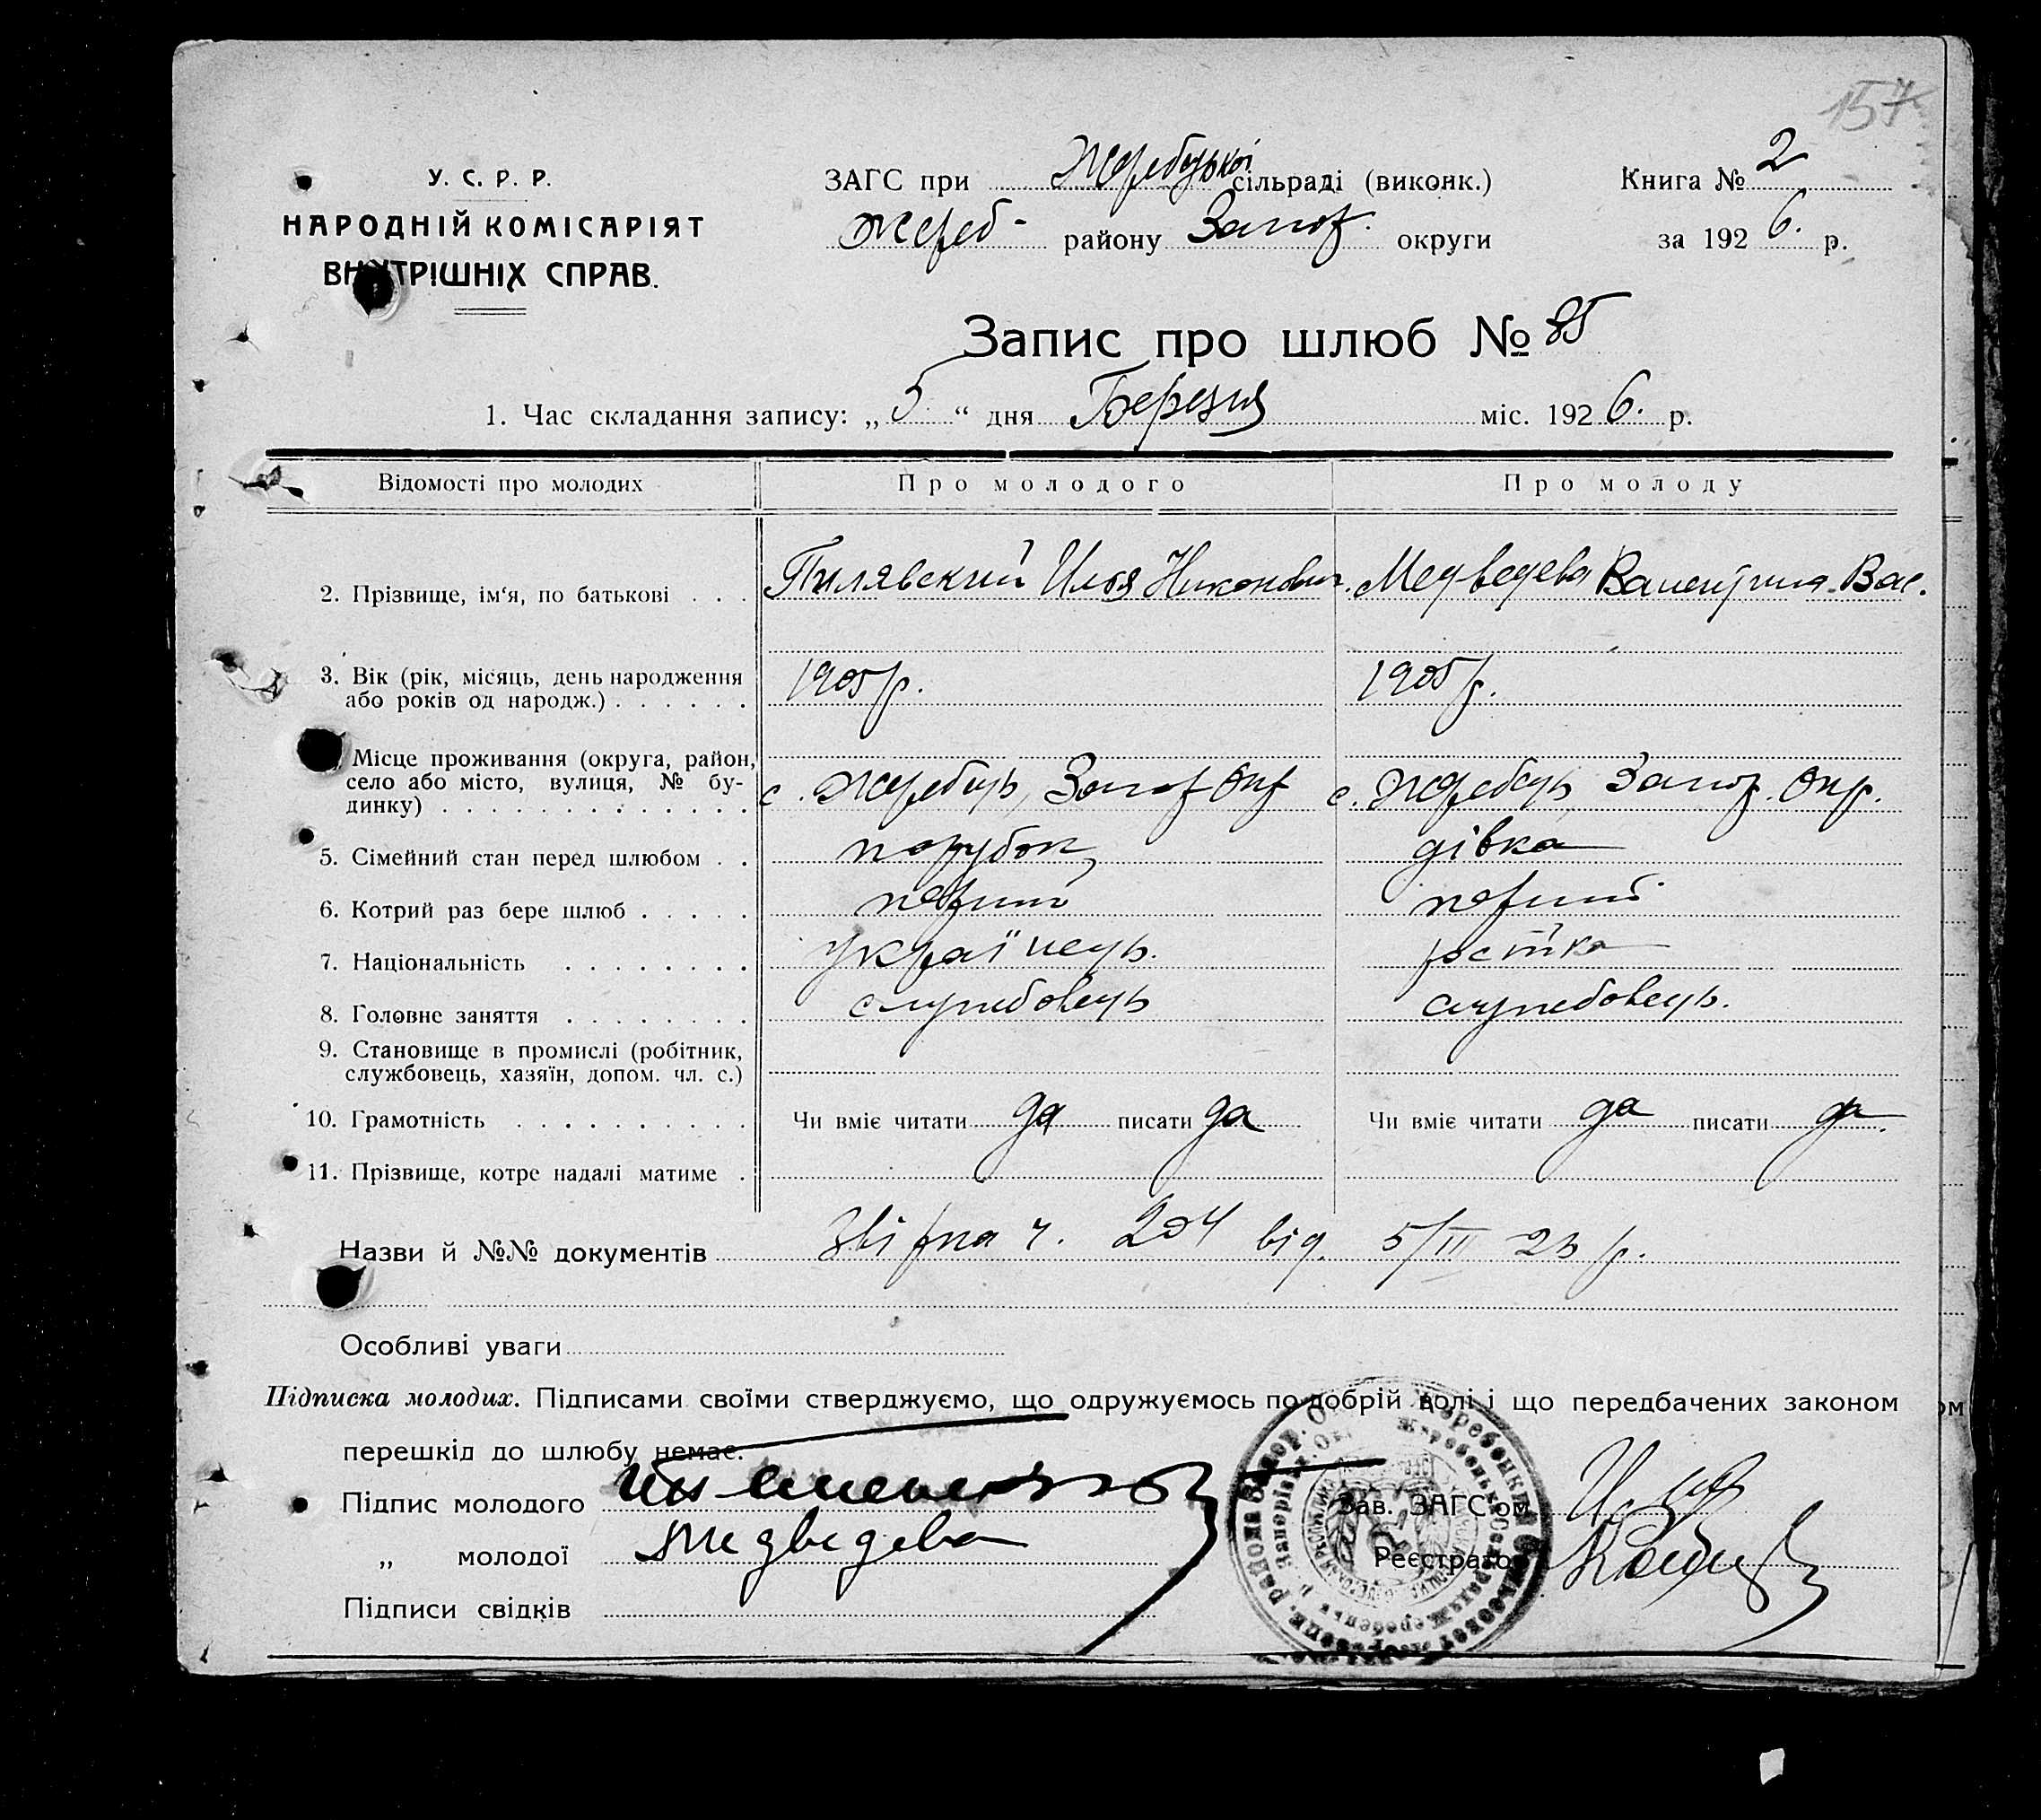 157
У. С. Р. Р.
НАРОДНІЙ КОМІСАРІЯТ
ВНУТРІШНІХ СПРАВ.
ЗАГС при Жеребецької сільраді (виконк.)
Книга № 2
Жереб- району Запор. округи
за 1926. р.
Запис про шлюб № 85
1. Час складання запису: „5“ дня Березня міс. 1926. р.
Відомості про молодих
Про молодого
Про молоду
2. Прізвище, ім'я, по батькові . . . Пилявский Илья Никонович. Медведева Валентина Вас.
3. Вік (рік, місяць, день народження
або років од народж.) . . . . . . 1905 р. 1905 р.
Місце проживання (округа, район,
село або місто, вулиця, № бу-
динку) . . . . . . . . . . . . . с. Жеребець, Запор Окр с. Жеребець, Запор. Окр.
5. Сімейний стан перед шлюбом . . парубок дівка
6. Котрий раз бере шлюб . . . . . перший перший
7. Національність . . . . . . . . українець.
8. Головне заняття . . . . . . . . службовець службовець.
9. Становище в промислі (робітник,
службовець, хазяїн, допом. чл. с.)
10. Грамотність . . . . . . . . . . Чи вміє читати да писати да Чи вміє читати да писати да.
11. Прізвище, котре надалі матиме .
Назви й №№ документів ч. 204 від. 5/III р.
Особливі уваги
Підписка молодих. Підписами своїми стверджуємо, що одружуємось по добрій волі і що передбачених законом
перешкід до шлюбу немає.
Підпис молодого
Зав. ЗАГС'ом
„ молодої Медведева
Реєстратор
Підписи свідків